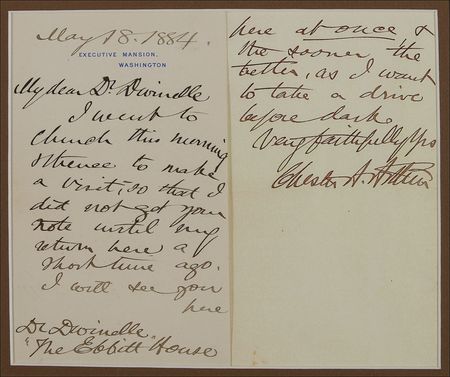 May 18. 1884.
EXECUTIVE MANSION,
WASHINGTON
My dear Dr. Dwinelle
I went to
church this morning
& thence to make
a visit, so that I
did not get your
note until my
return here a
short time ago.
I will see you
here
Dr Dwinelle
"The Ebbitt" House
here at once, &
the sooner the
better, as I want
to take a drive
before dark.
Very faithfully Yrs
Chester A. Arthur